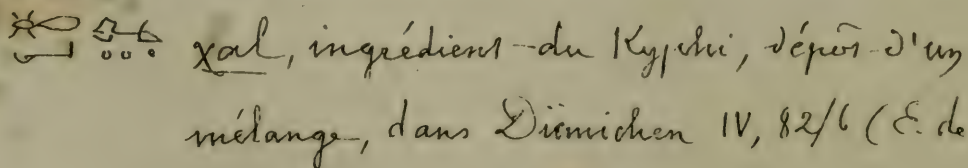 χal, ingrédient du Kyphi, dépôt d'un
mélange, dans Dümichen IV, 82/6 (E. de